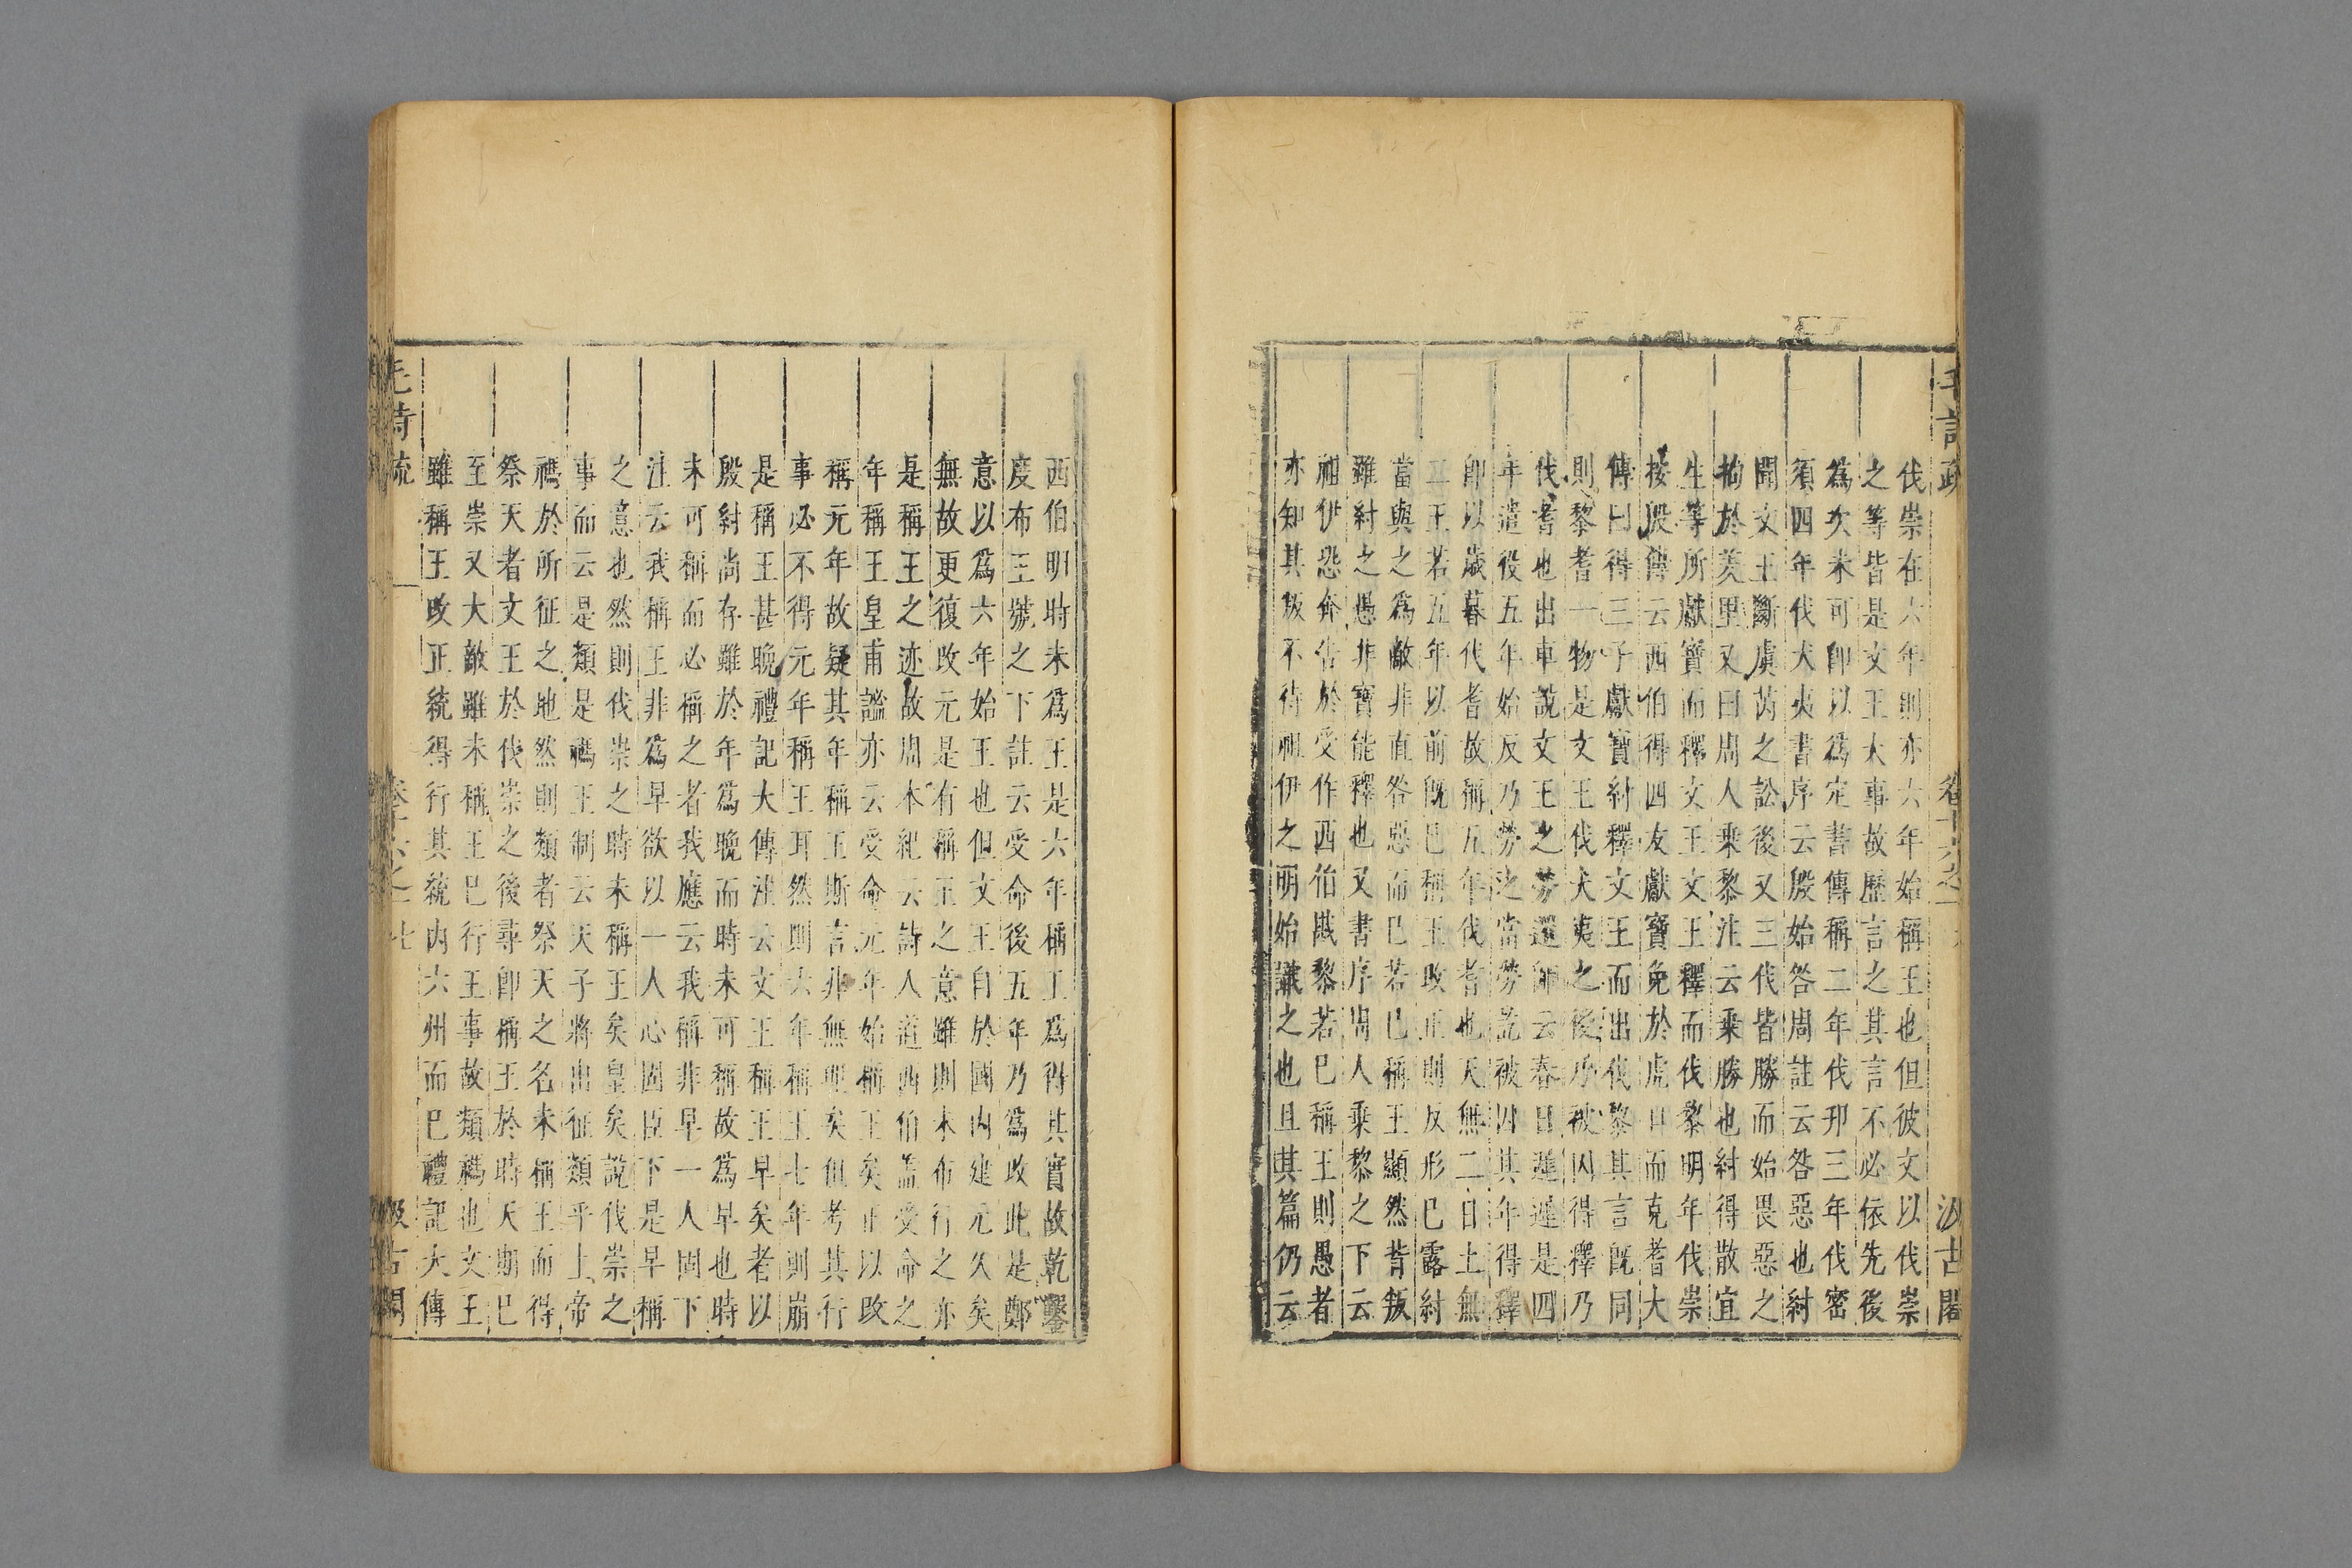 毛詩疏 卷十六之一 汲古閣
伐崇在六年則亦六年始稱王也但彼文以伐崇
之等皆是文王大事故歷言之其言不必依先後
爲次未可卽以爲定書傳稱二年伐邘三年伐密
須四年伐犬夷書序云殷始咎周註云咎惡也紂
聞文王斷虞芮之訟後又三伐皆勝而始畏惡之
拘於羑里又曰周人乘黎注云乘勝也紂得散宜
生等所獻寶而釋文王文王釋而伐黎明年伐崇
按殷傳云西伯得四友獻寶免於虎口而克耆大
傳曰得三子獻寶紂釋文王而出伐黎其言旣同
則黎耆一物是文王伐犬夷之後乃被囚得釋乃
伐耆也出車說文王之勞還師云春日遲遲是四
年遣役五年始反乃勞之當勞訖被囚其年得釋
卽以歲暮伐耆故稱五年伐耆也天無二日土無
二王若五年以前旣已稱王改正則反形已露紂
當與之爲敵非直咎惡而已若已稱王顯然背叛
雖紂之愚非寶能釋也又書序周人乘黎之下云
祖伊恐奔告於受作西伯戡黎若已稱王則愚者
亦知其叛不待祖伊之明始識之也且其篇仍云
西伯明時未爲王是六年稱王爲得其實故乾鑿
度布王號之下註云受命後五年乃爲改此是鄭
意以爲六年始王也但文王自於國內建元久矣
無故更復改元是有稱王之意雖則未布行之亦
是稱王之迹故周本紀云詩人道西伯蓋受命之
年稱王皇甫謐亦云受命元年始稱王矣正以改
稱元年故疑其年稱王斯言非無理矣但考其行
事必不得元年稱王耳然則六年稱王七年則崩
是稱王甚晚禮記大傳注云文王稱王早矣者以
殷紂尚存雖於年爲晚而時未可稱故爲早也時
未可稱而必稱之者我應云我稱非早一人固下
注云我稱王非爲早欲以一人心固臣下是早稱
之意也然則伐崇之時未稱王矣皇矣說伐崇之
事而云是類是禡王制云天子將出征類乎上帝
禡於所征之地然則類者祭天之名未稱王而得
祭天者文王於伐崇之後尋卽稱王於時天期已
至崇又大敵雖未稱王已行王事故類禡也文王
雖稱王改正統得行其統內六州而已禮記大傳
毛詩疏 卷十六之一 七 汲古閣